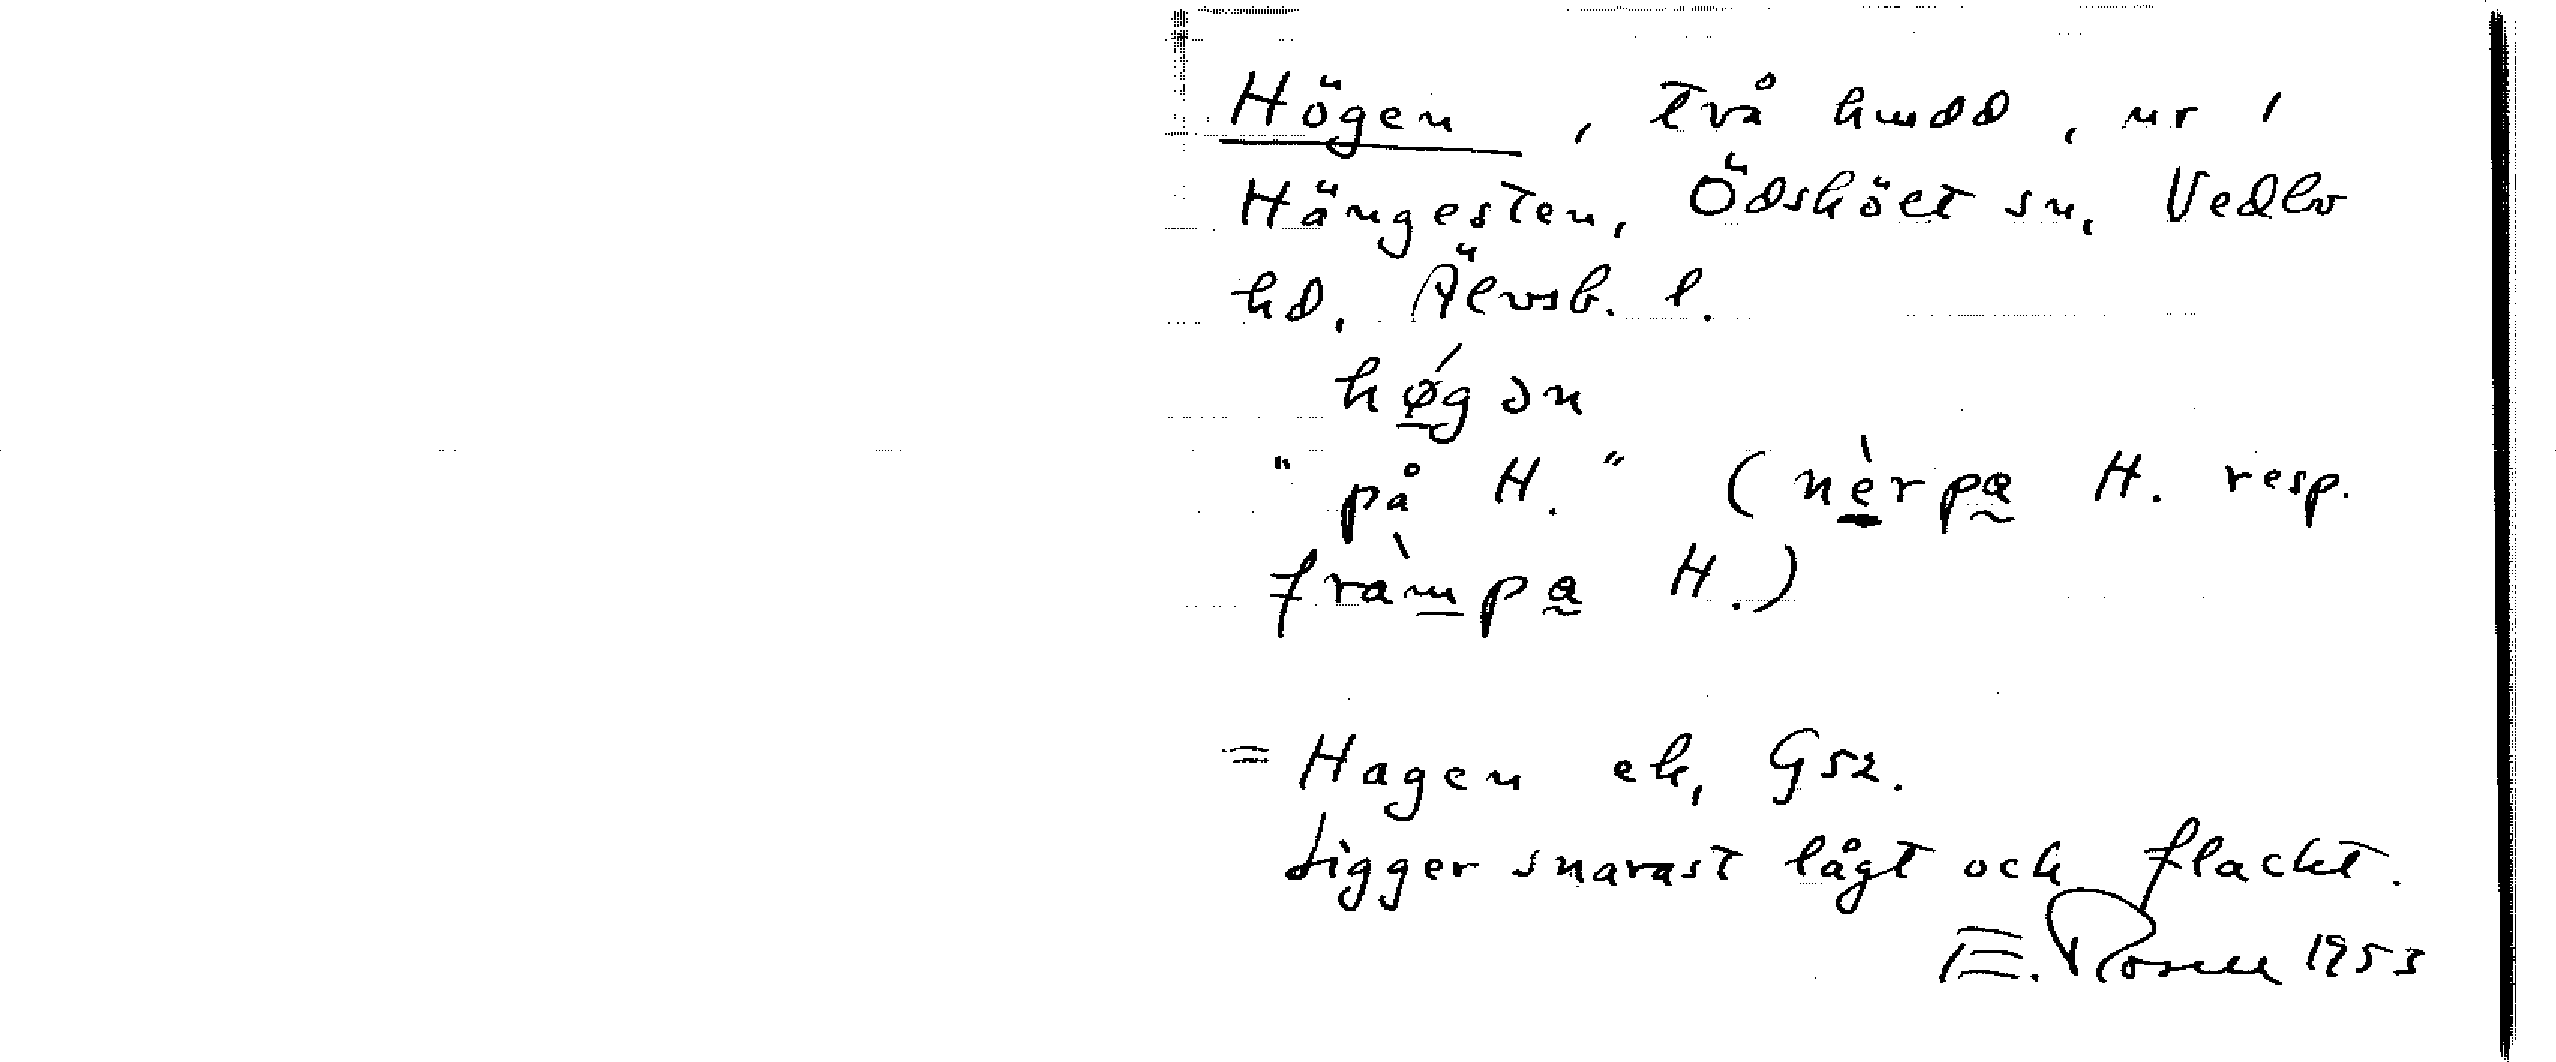 Högen, två hmdd, ur 1
Hängesten, Ödskölt sn, Vedbo
hd, Älvsb. l.
hǿgən
"på H." (nèrpa H. resp.
fràmpa H.)
= Hagen ek, G52.
Ligger snarast lågt och flackt.
E. Rosell 1953